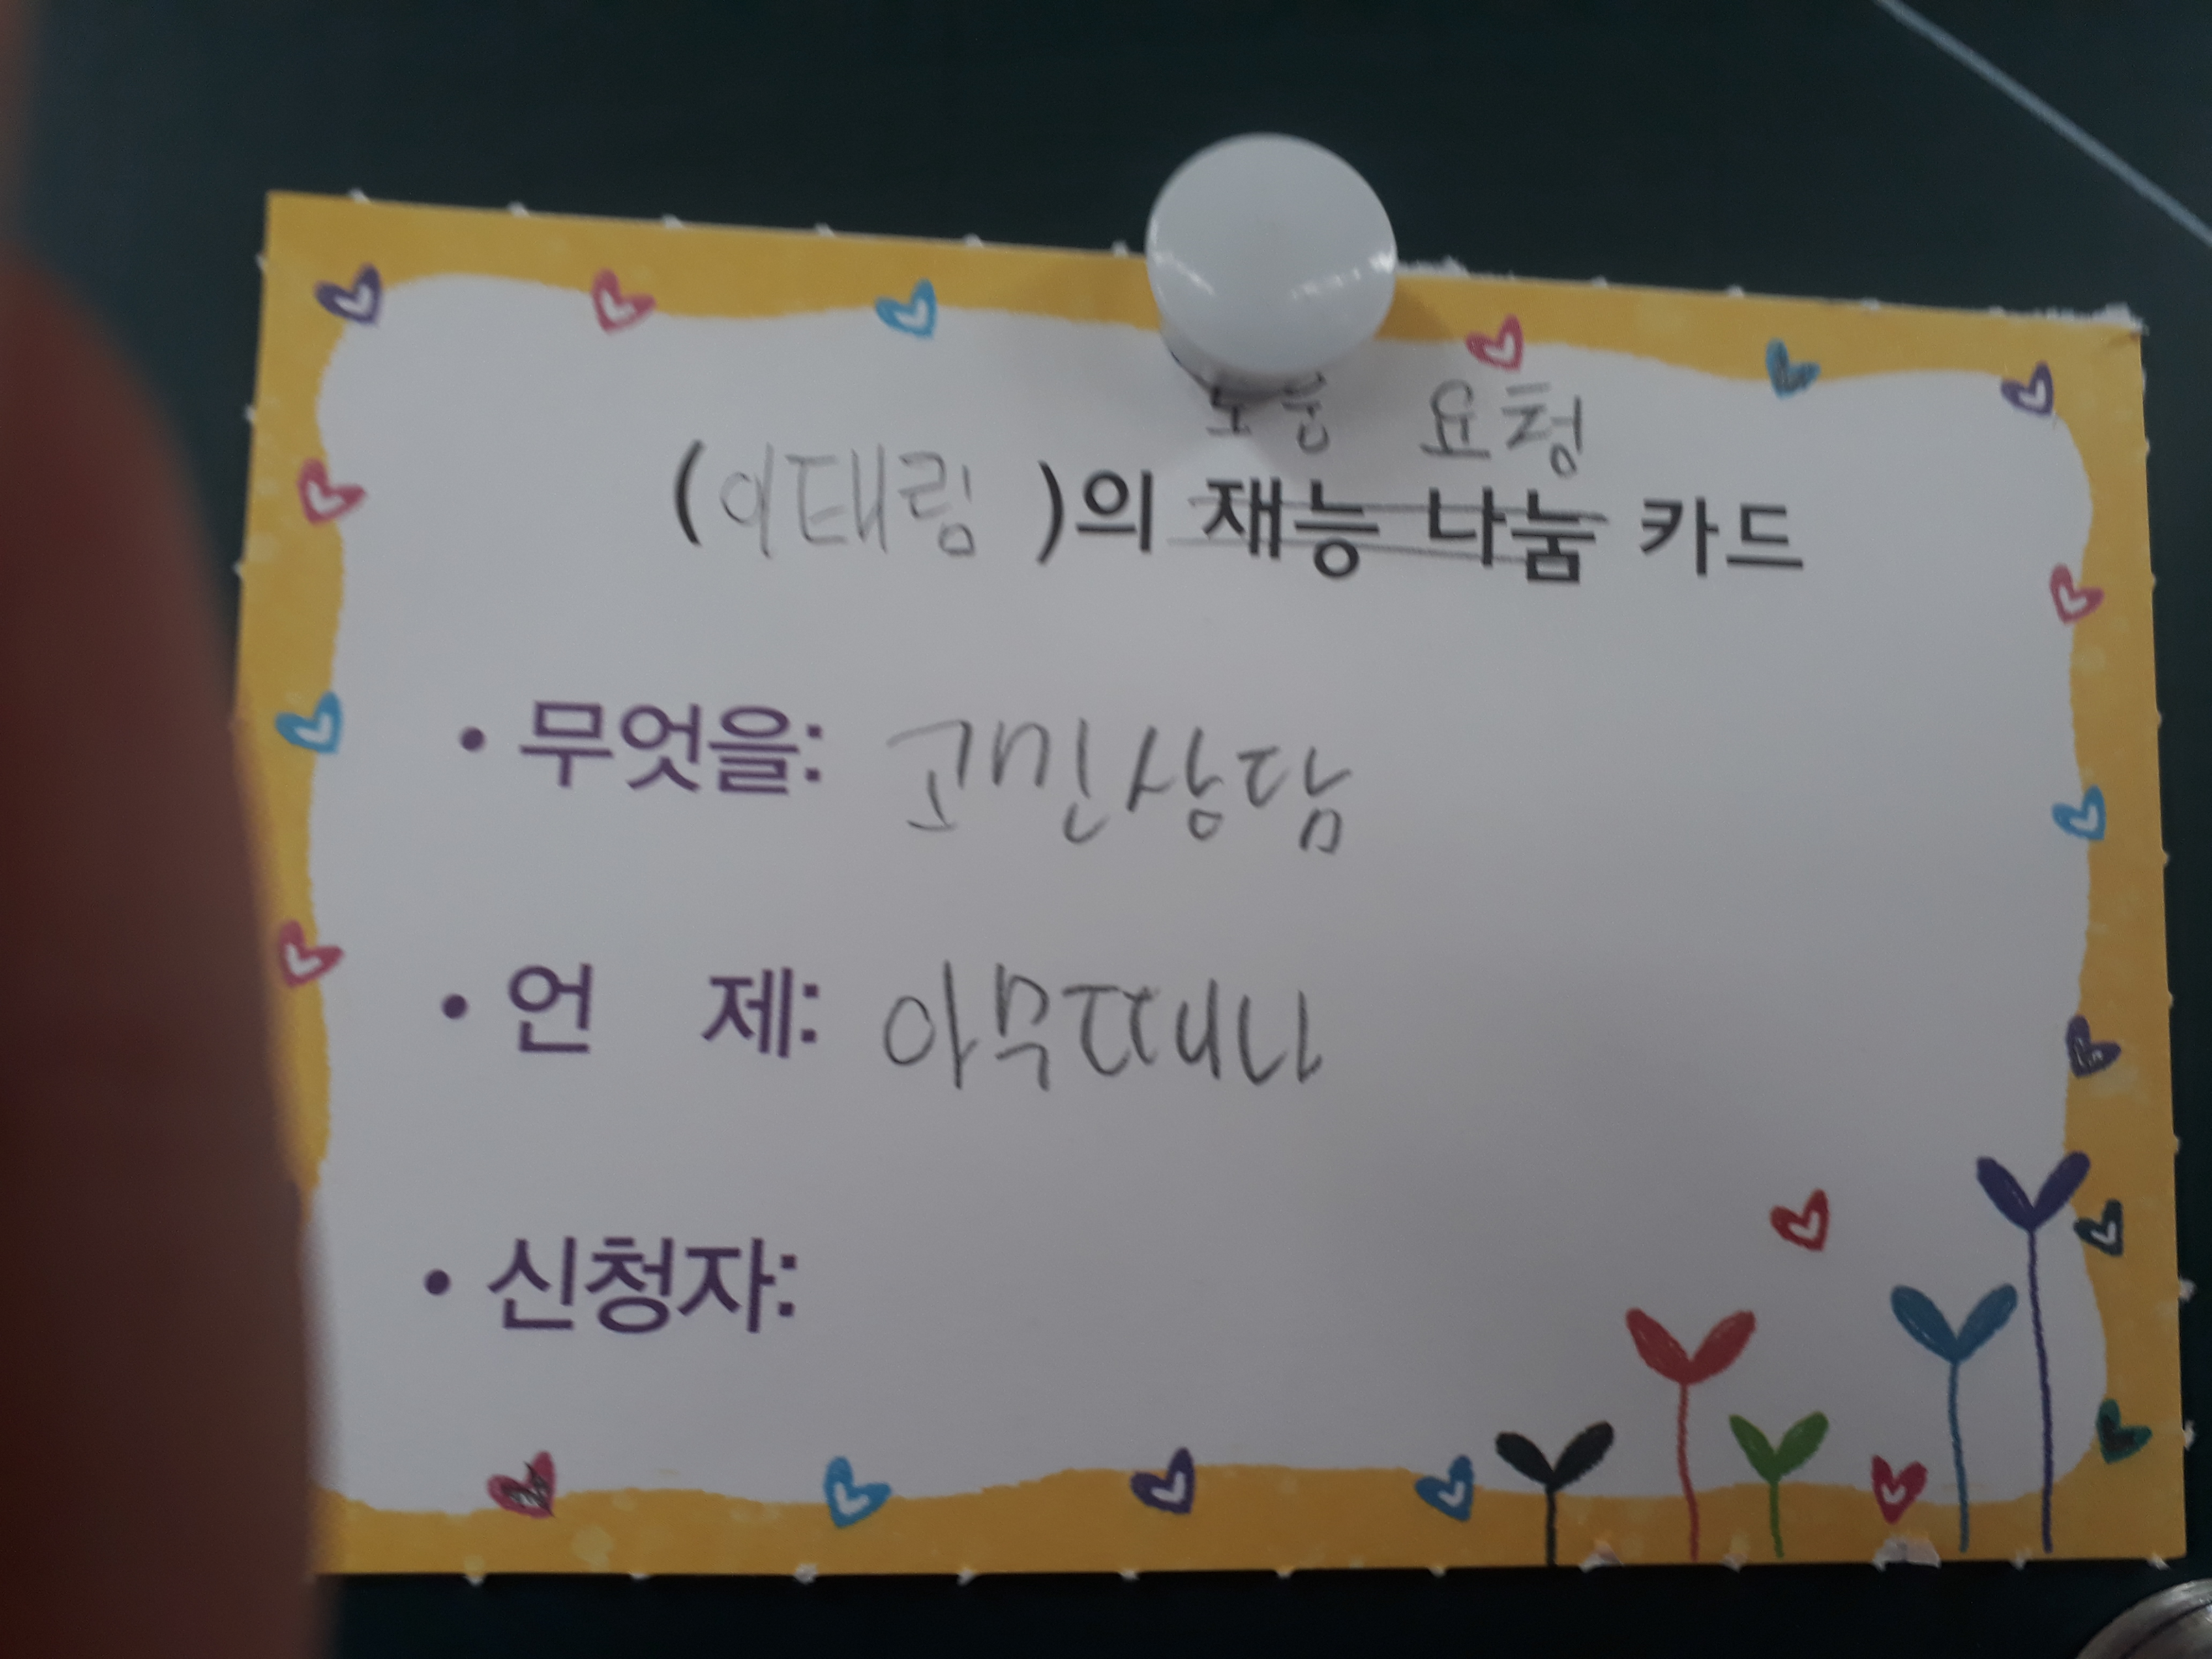 도움 요청
(이태림)의 재능 나눔 카드
• 무엇을: 고민상담
• 언 제: 아무때나
• 신청자: